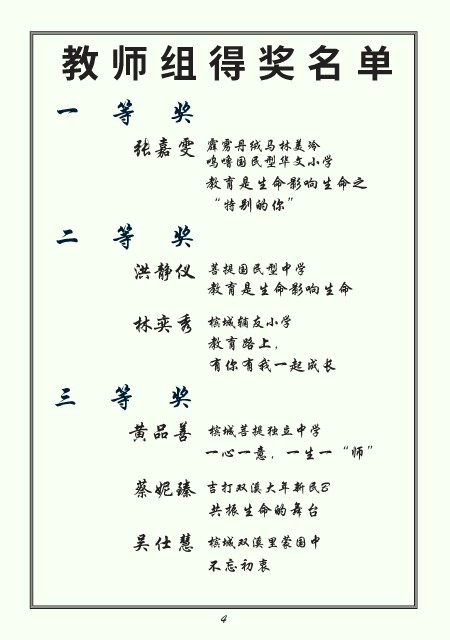 教师组得奖名单
一等奖
张嘉雯 霹雳丹绒马林美冷
呜噜国民型华文小学
教育是生命影响生命之
“特别的你”
二等奖
洪静仪 菩提国民型中学
教育是生命影响生命
林奕秀 槟城辅友小学
教育路上，
有你有我一起成长
三等奖
黄品善 槟城菩提独立中学
一心一意，一生一“师”
蔡妮臻 吉打双溪大年新民B
共振生命的舞台
吴仕慧 槟城双溪里蒙国中
不忘初衷
4